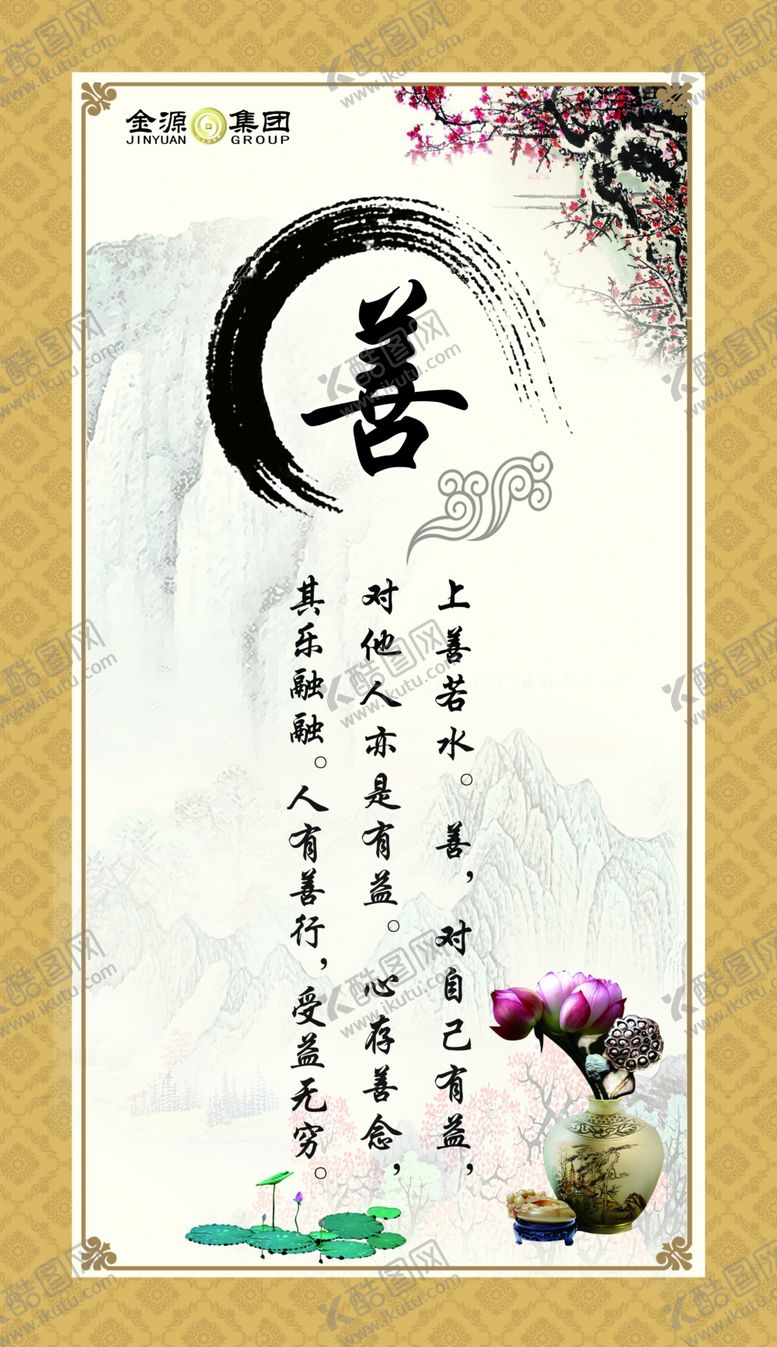 金源集团
JINYUAN GROUP
善
上善若水。善，对自己有益，
对他人亦是有益。心存善念，
其乐融融。人有善行，受益无穷。
酷图网
www.ikutu.com